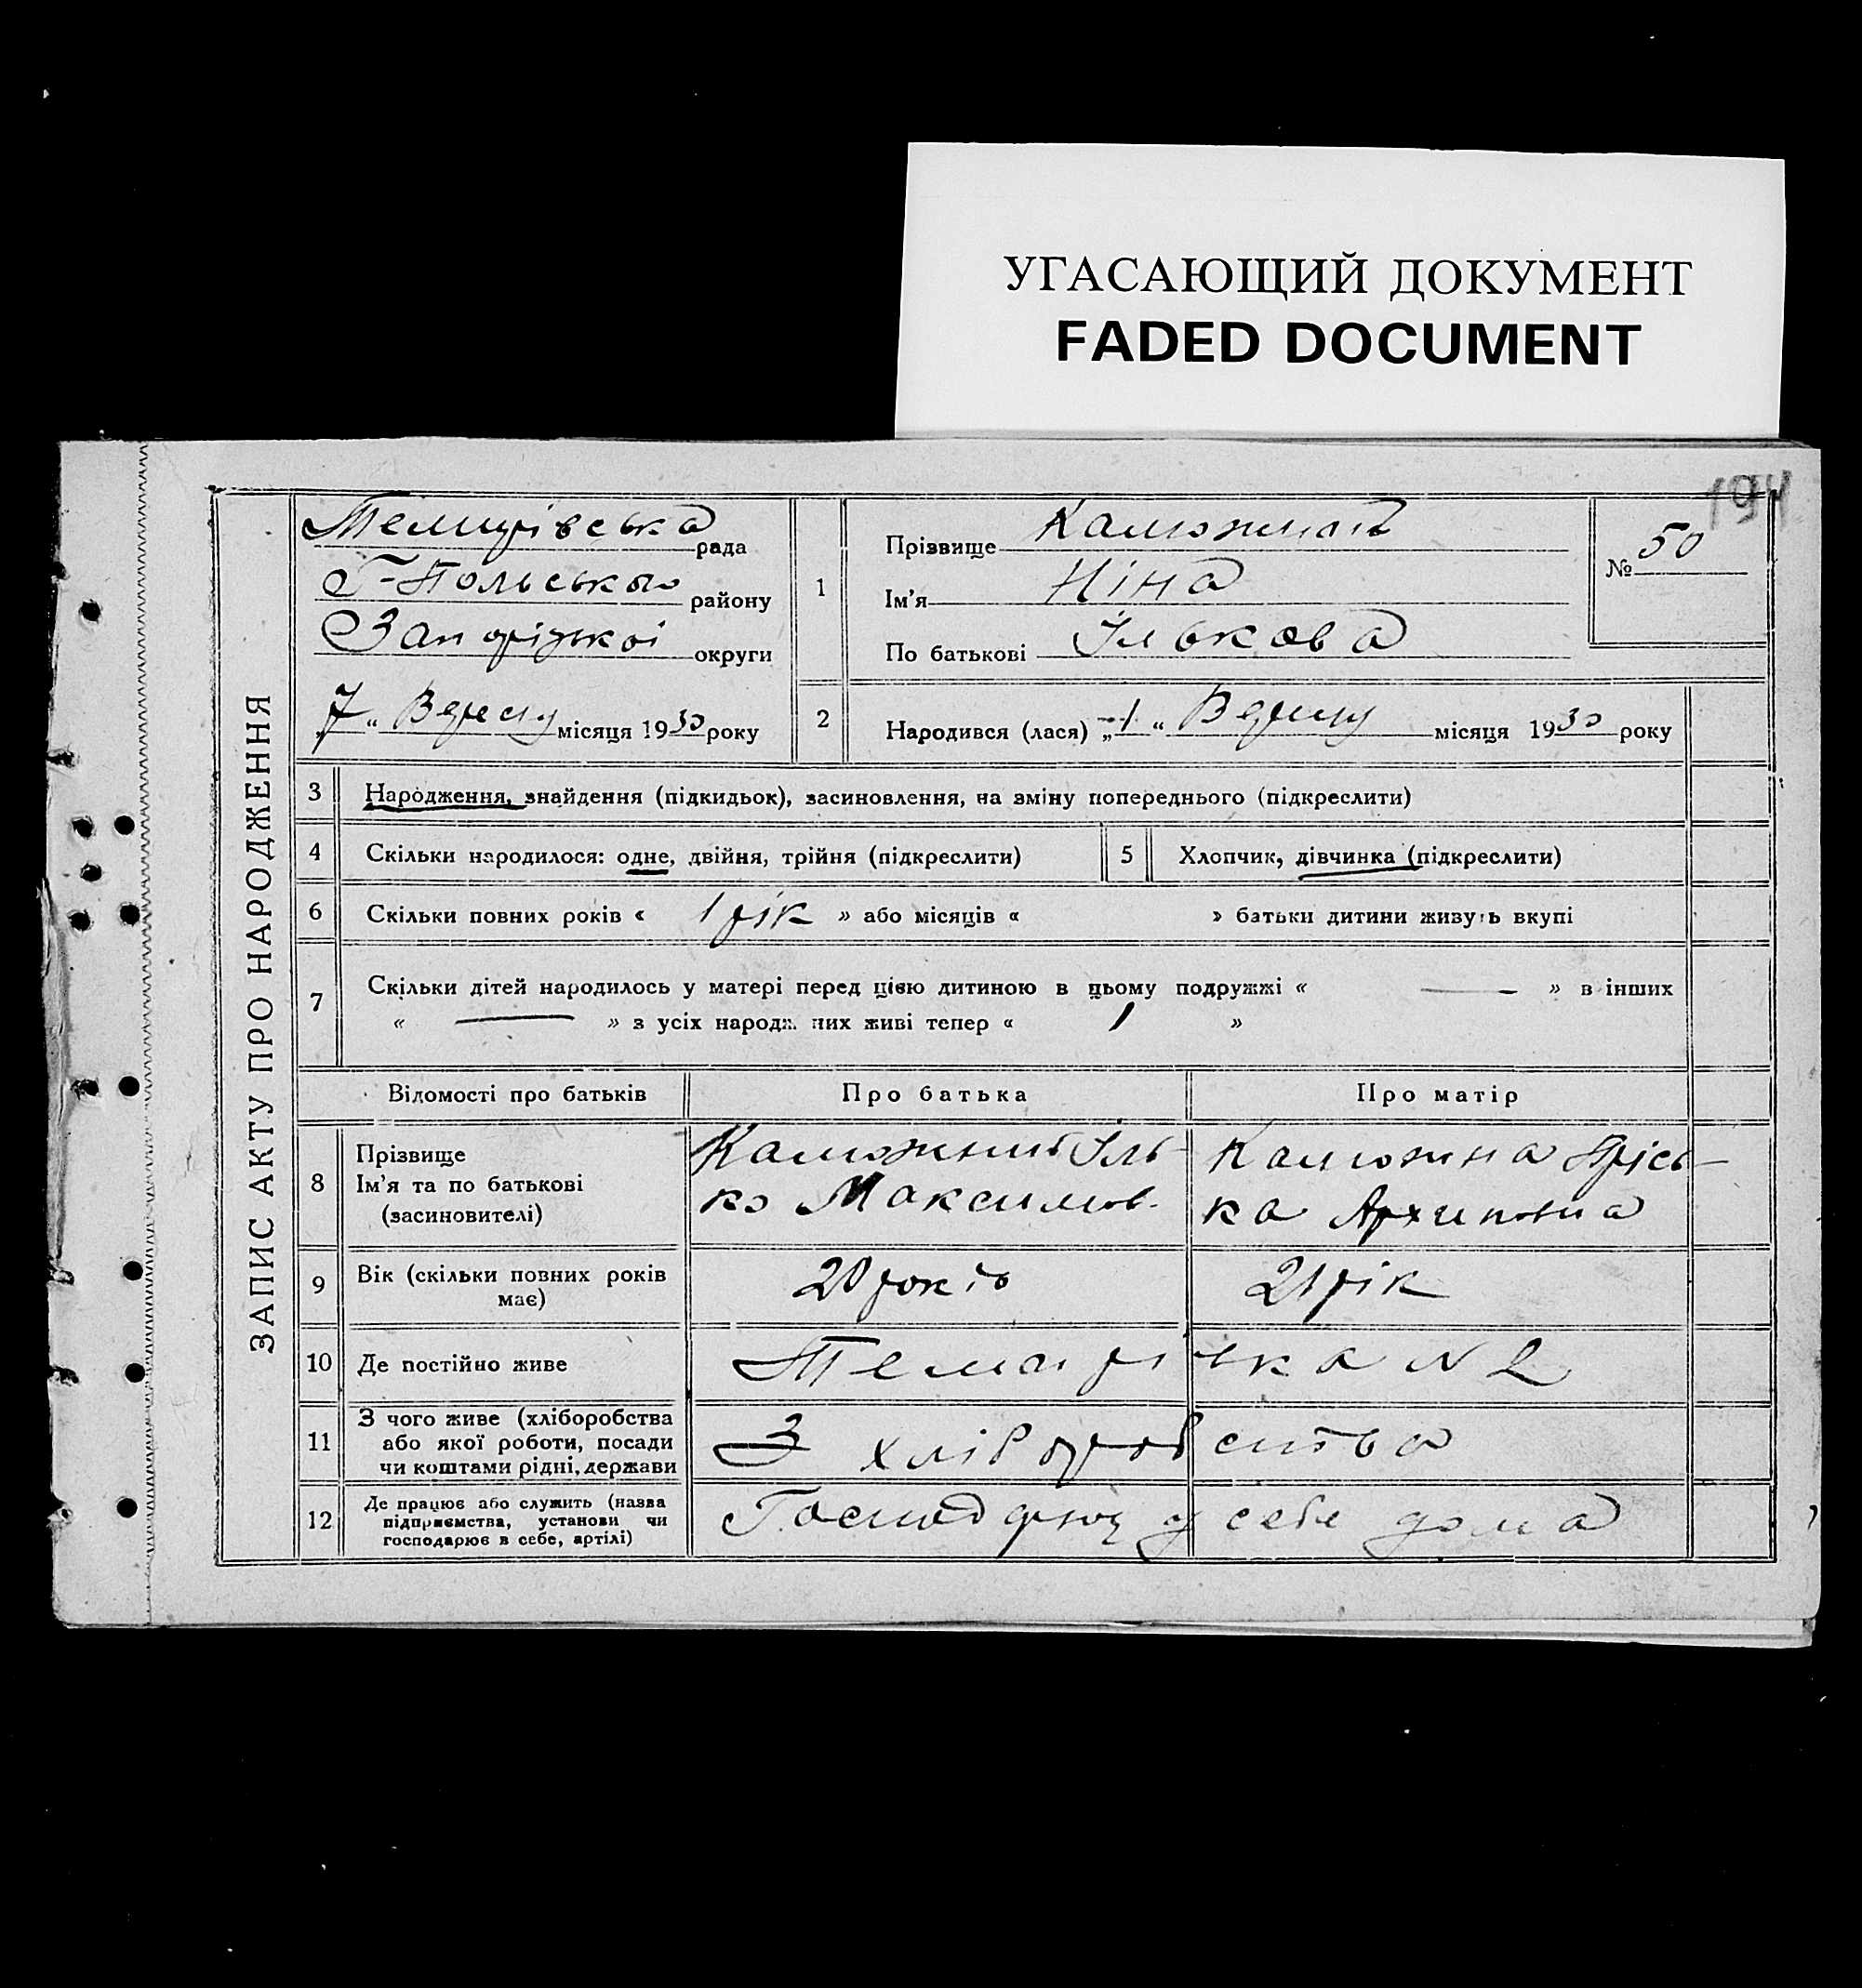 УГАСАЮЩИЙ ДОКУМЕНТ
FADED DOCUMENT
194
ЗАПИС АКТУ ПРО НАРОДЖЕННЯ
Темирівська рада
Г-Польського району
Запорізької округи
„7“ Вересня місяця 1930 року
1
Прізвище Калюжная
Ім'я Ніна
По батькові Ількова
№ 50
2
Народився (лася) „1“ Вересня місяця 1930 року
3 Народження, знайдення (підкидьок), засиновлення, на зміну попереднього (підкреслити)
4 Скільки народилося: одне, двійня, трійня (підкреслити) 5 Хлопчик, дівчинка (підкреслити)
6 Скільки повних років « 1 рік » або місяців « » батьки дитини живуть вкупі
7 Скільки дітей народилось у матері перед цією дитиною в цьому подружжі « — » в інших
« — » з усіх народж них живі тепер « 1 »
Відомості про батьків Про батька Про матір
8 Прізвище Ім'я та по батькові (засиновителі)
Калюжний Іль-
ко Максимов.
Калюжна Прісь-
ка Архиповна
9 Вік (скільки повних років має) 20 років 21 рік
10 Де постійно живе Темирівка N 2
11 З чого живе (хліборобства або якої роботи, посади чи коштами рідні, держави З хліборобства
12 Де працює або служить (назва підприємства, установи чи господарює в себе, артілі) у себе дома